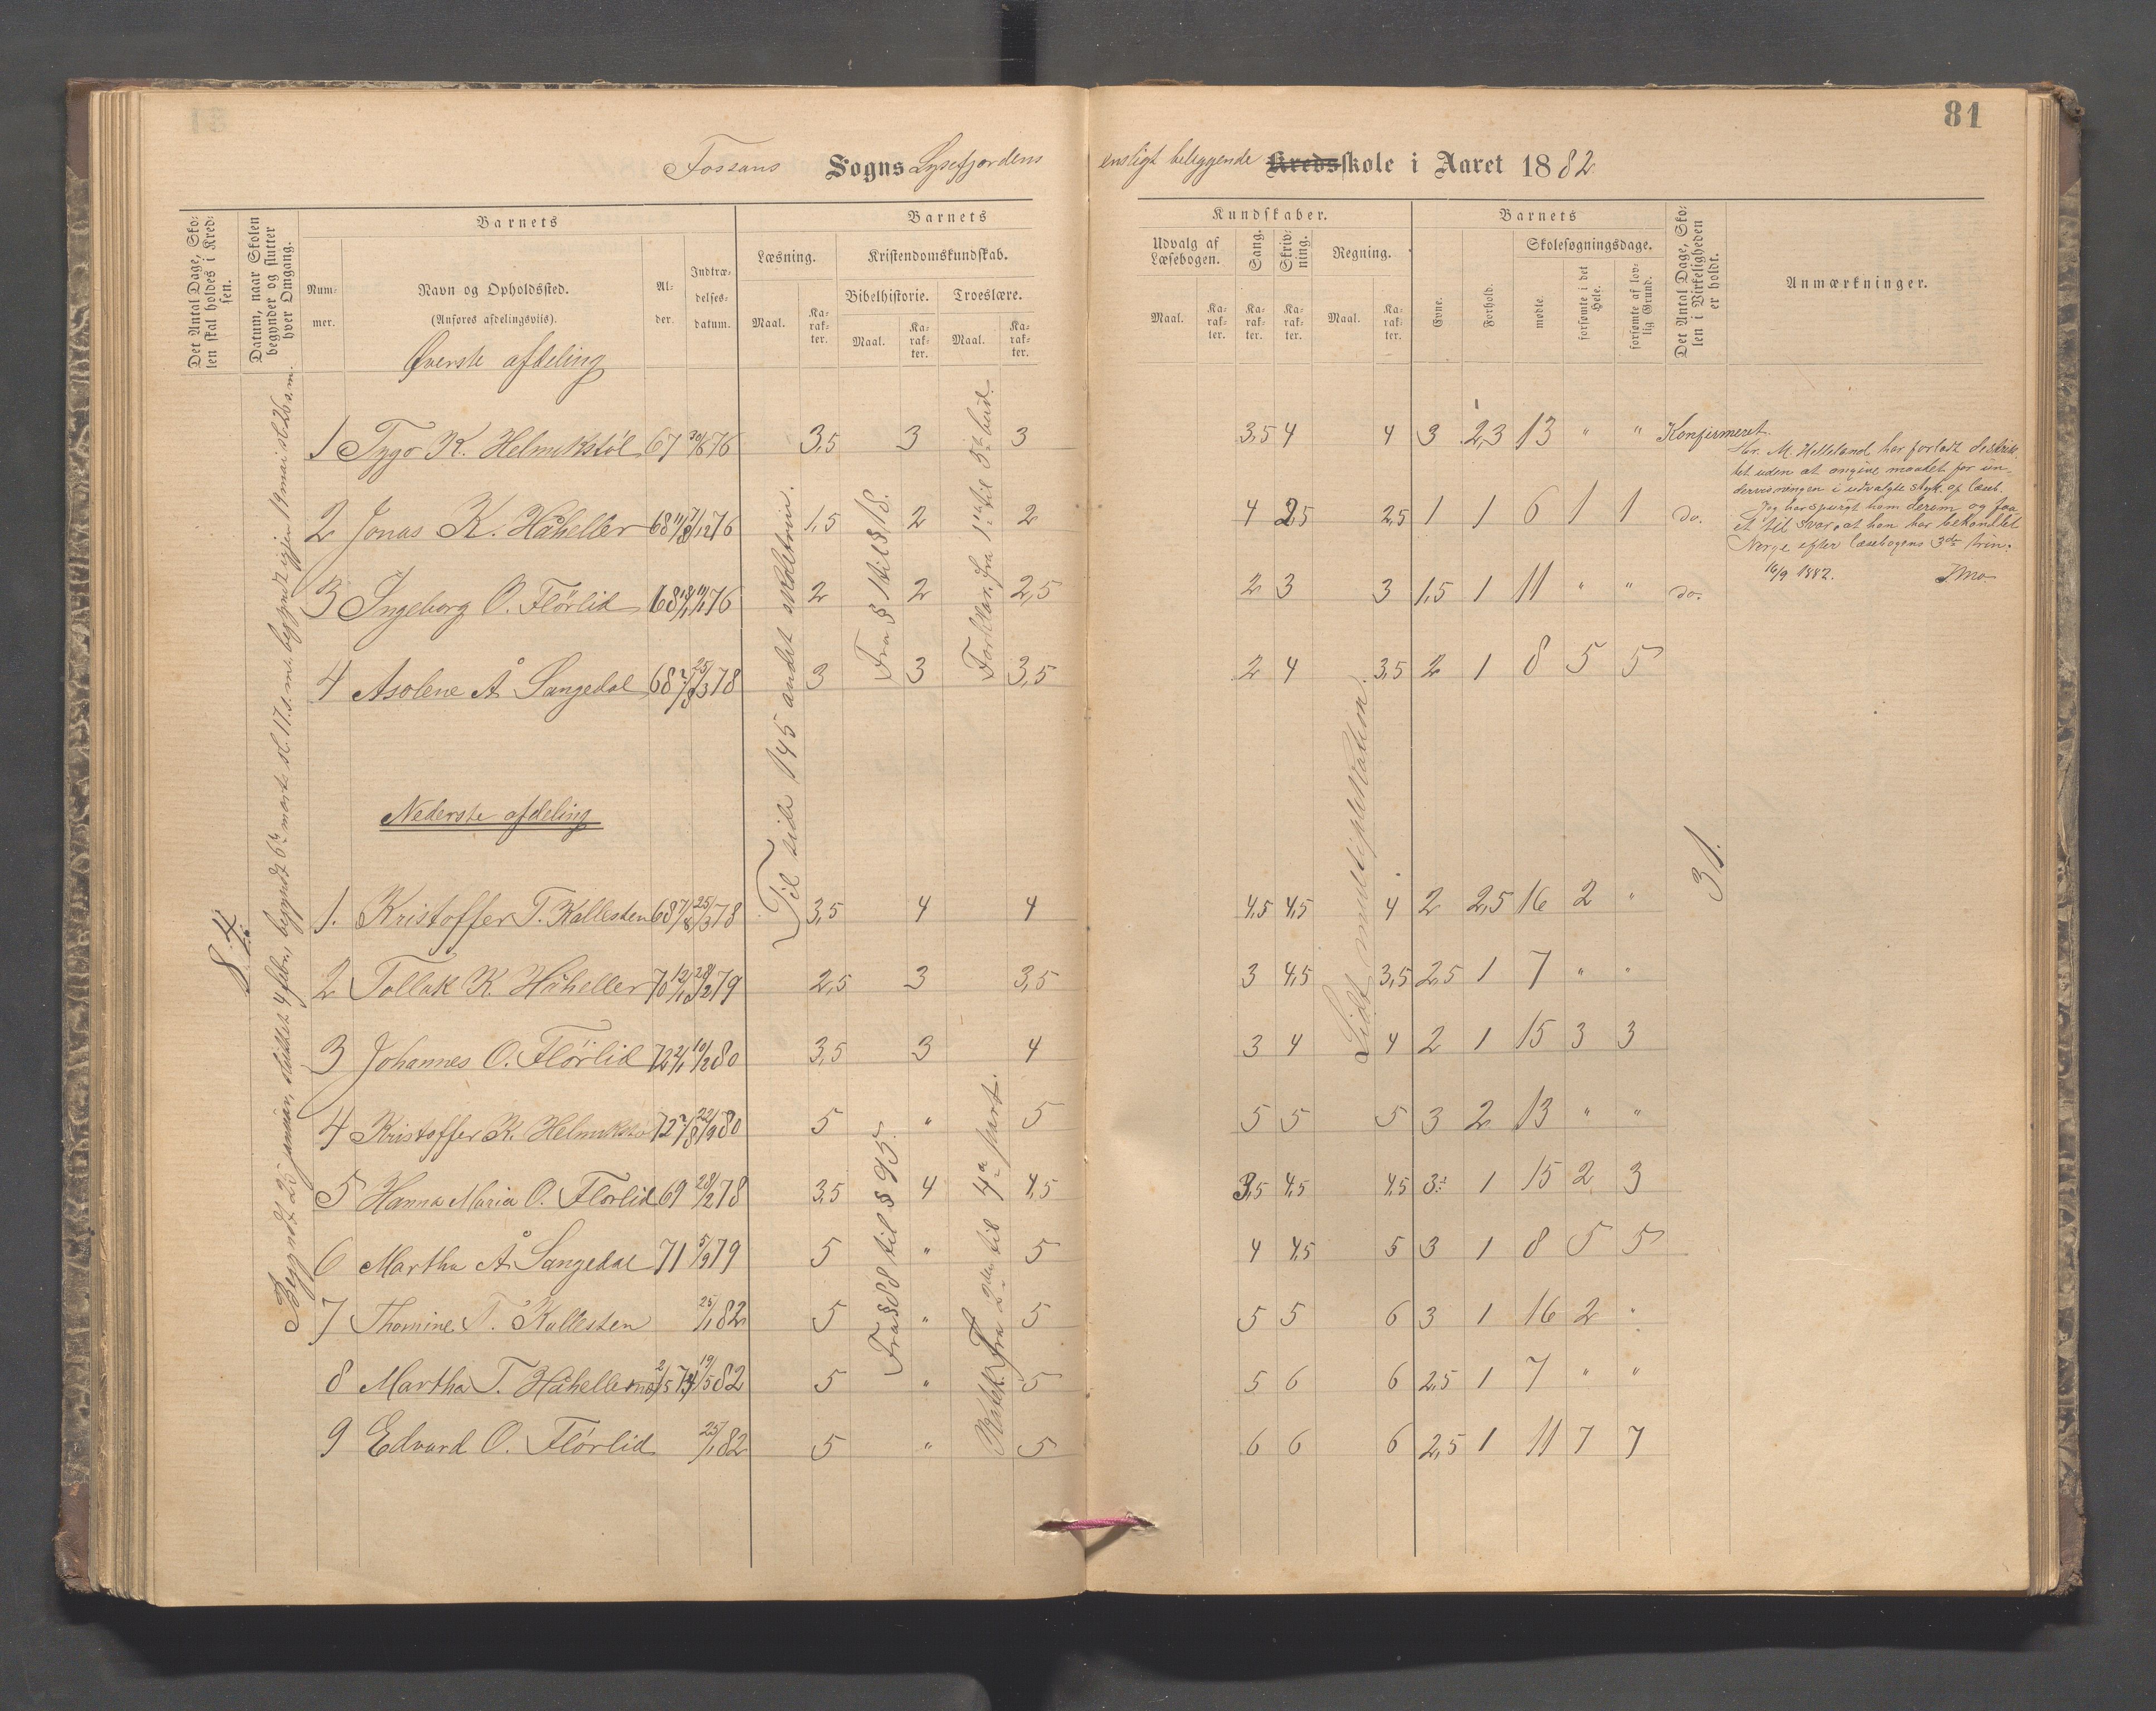 81
Fossans Sogns Lysefjordens ensligt beliggende Kredsskole i Aaret 1882
Det Antal Dage, Skolen skal holdes i Kredsen.
Datum, naar Skolen begynder og slutter hver Omgang.
Barnets
Nummer.
Navn og Opholdssted.
(Anføres afdelingsviis).
Alder.
Indtrædelsesdatum.
Barnets Kundskaber.
Læsning.
Maal.
Karakter.
Kristendomskundskab.
Bibelhistorie.
Maal.
Karakter.
Troeslære.
Maal.
Karakter.
Udvalg af Læsebogen.
Maal.
Karakter.
Sang.
Karakter.
Skrivning.
Karakter.
Regning.
Maal.
Karakter.
Barnets
Evne.
Forhold.
Skolesøgningsdage.
mødte.
forsømte i det Hele.
forsømte af lovlig Grund.
Det Antal Dage, Skolen i Virkeligheden er holdt.
Anmærkninger.
Øverste afdeling
1 Tygo K. Helmikstøl 67 30/6 76 3,5 3 3 3,5 4 4 3 2,3 13 " " Konfirmeret.
2 Jonas K. Håheller 68 11/8 7/12 76 1,5 2 2 4 2,5 2,5 1 1 6 1 1 do.
3 Ingeborg O. Flörlid 68 76 2 2 2,5 2 3 3 1,5 1 11 " " do.
4 Asolene Å Sangedal 68 7/8 25/3 78 3 3 3,5 2 4 3,5 2 1 8 5 5
Hr. M. Helleland har forladt distrik-
tet uden at angive maalet for un-
dervisningen i udvalgte styk. af læseb.
Jeg har spurgt ham derom og faa-
et til svar, at han har behandlet
Norge efter læsebogens 3de trin.
16/9 1882.
Nederste afdeling
1. Kristoffer T. Kallesten 68 7/8 25/3 78 3,5 4 4 4,5 4,5 4 2 2,5 16 2 "
2 Tollak K. Håheller 70 12/10 28/2 79 2,5 3 3,5 3 4,5 3,5 2,5 1 7 " "
3 Johannes O. Flörlid 72 10/2 80 3,5 3 4 3 4 4 2 1 15 3 3
4 Kristoffer K. Helmikstø 72 7/8 22/9 80 5 " 5 5 5 5 3 2 13 " "
5 Hanna Maria O. Flörlid 69 28/2 78 3,5 4 4,5 3,5 4,5 4,5 3 1 15 2 3
6 Martha Å Sangedal 71 5/9 79 5 " 5 4 4,5 5 3 1 8 5 5
7 Thomine T. Kallesten 25/1 82 5 " 5 5 5 6 3 1 16 2 "
8 Martha T. Håheller 2/5 73 19/5 82 5 " 5 5 6 6 2,5 1 7 " "
9 Edvard O. Flörlid 25/1 82 5 " 5 6 6 6 2,5 1 11 7 7
84
Begyndt 25 januar, sluttet 4 febr., begyndt 6te marts sl. 17. s.m. begyndt igjen 19 mai sl. 26 s.m.
Til side 145 andet skoletrin.
Fra § 1 til § 18.
Forklar. fra 1ste til 5te bud.
Fra § 88 til § 95.
Katek. Fra 2den til 4de part.
Lidt multiplikation.
31.